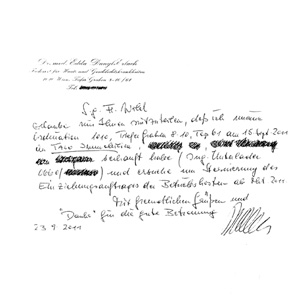 Dr. med. Edda
Facharzt für Haut und Geschlechtskrankheiten
1010 Wien, Tiefer Graben 8-10/
Tel.
S.g. Fr.
Erlaube mir Ihnen mitzuteilen, daß ich meine
Ordination 1010, Tiefer Graben 8-10, Top 61 am 16. Sept 2011
an
verkauft habe (Ing.
) und ersuche um Stornierung des
Einziehungsauftrages der Betriebskosten ab Okt 2011
Mit freundlichen Grüßen und
"Danke" für die gute Betreuung
23 9 2011